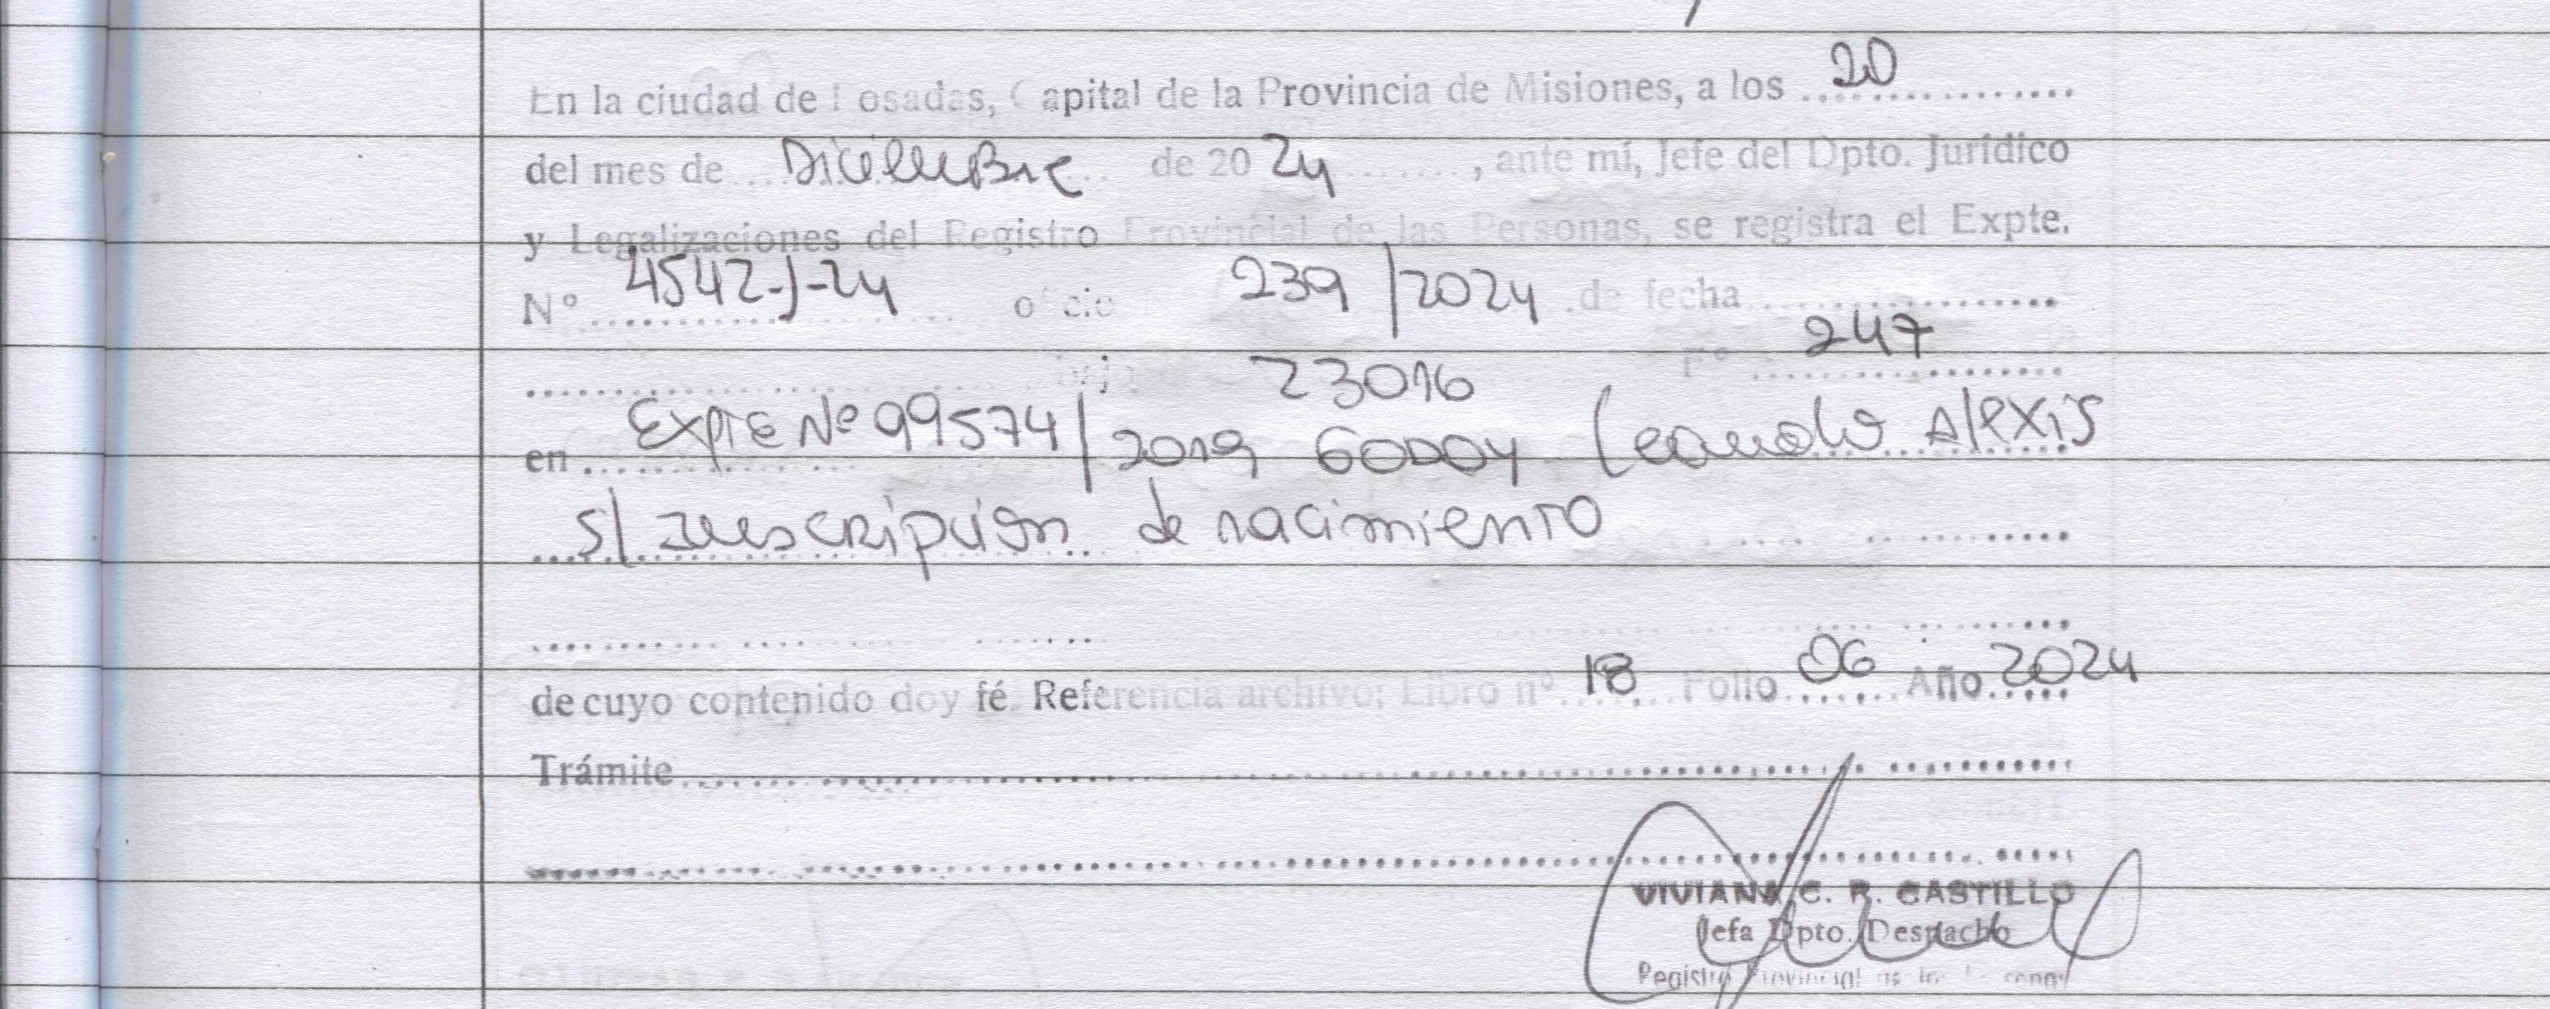 En la ciudad de Posadas, Capital de la Provincia de Misiones, a los 20
del mes de Diciembre de 2024, ante mí, Jefe del Dpto. Jurídico
y Legalizaciones del Registro Provincial de las Personas, se registra el Expte.
Nº 4542-J-24 oficio 239/2024 de fecha
bajo 23016 Fº 247
en Expte Nº 99574/2019 Godoy Leandro Alexis
s/ Inscripción de nacimiento
de cuyo contenido doy fé. Referencia archivo: Libro nº 18 Folio 06 Año 2024
Trámite
VIVIANA C. R. CASTILLO
Jefa Dpto. Despacho
Registro Provincial de las Personas